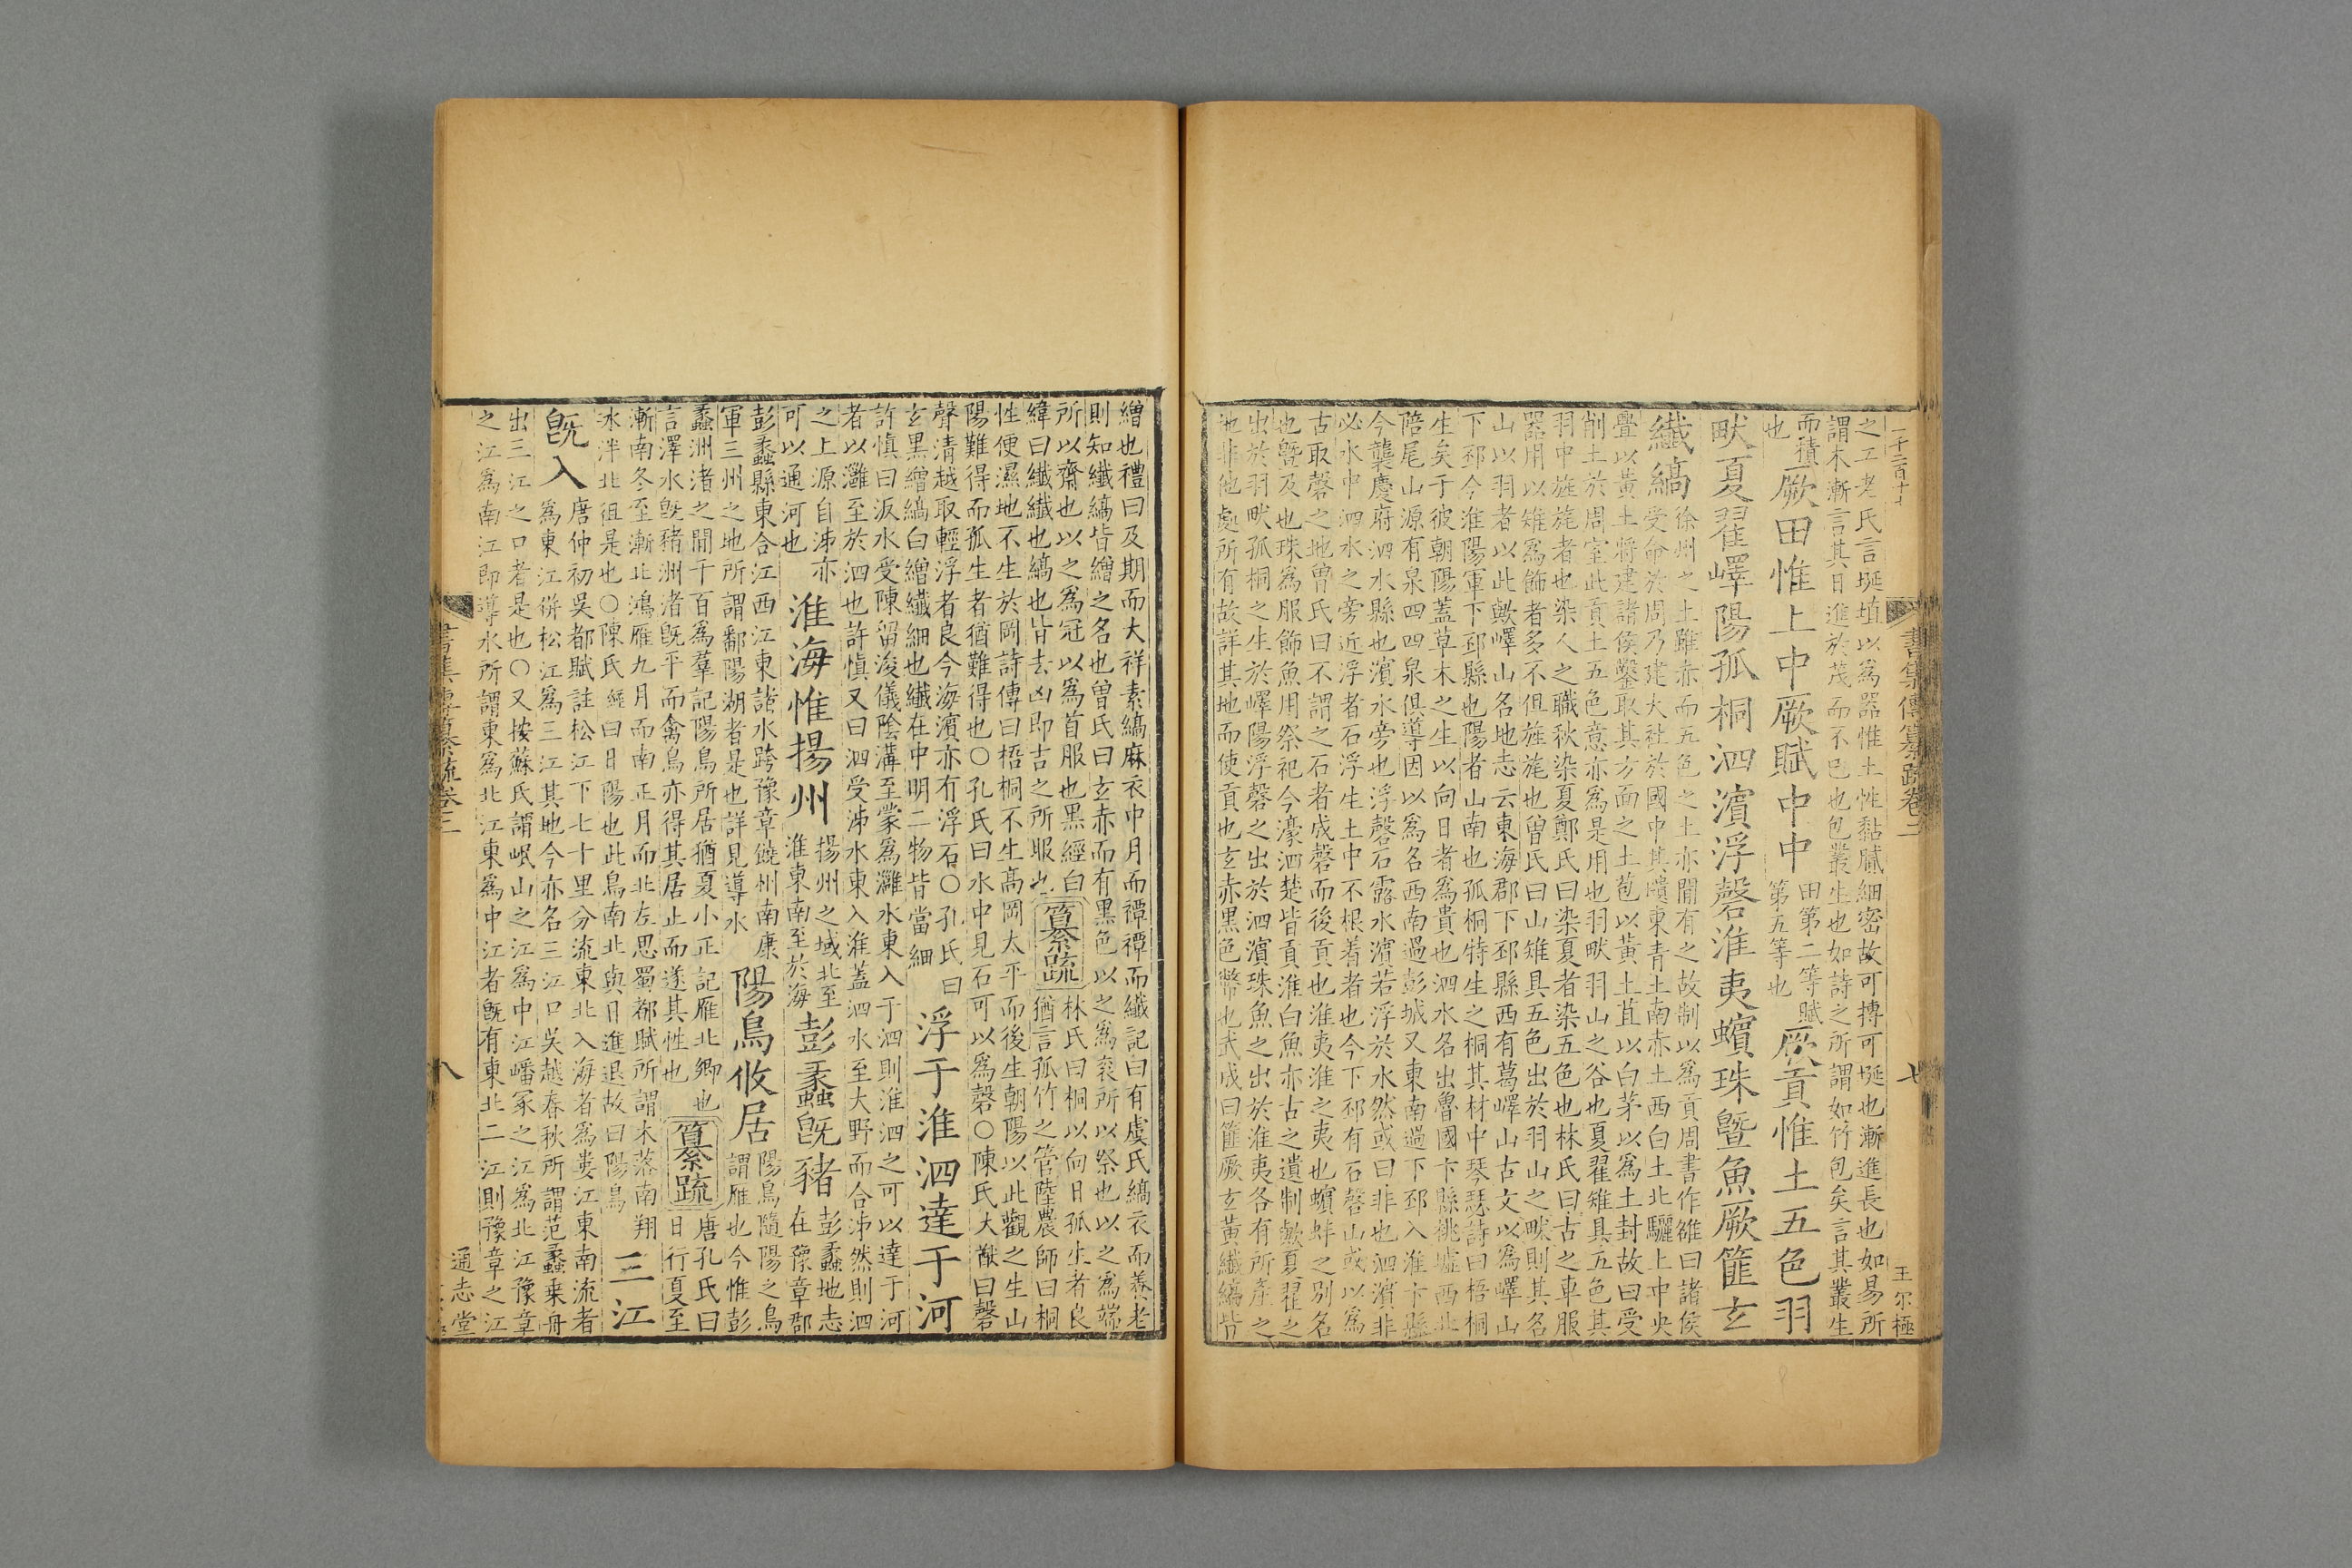 一千二百十
書集傳纂疏卷二
七
王尔極
之工老氏言埏埴以為器惟土性黏膩細密故可摶可埏也漸進長也如易所
謂木漸言其日進於茂而不已也包叢生也如詩之所謂如竹包矣言其叢生
而積
也
厥田惟上中厥賦中中
田第二等賦
第五等也
厥貢惟土五色羽
畎夏翟嶧陽孤桐泗濱浮磬淮夷蠙珠曁魚厥篚玄
纖縞
徐州之土雖赤而五色之土亦閒有之故制以為貢周書作雒曰諸侯
受命於周乃建大社於國中其壝東青土南赤土西白土北驪土中央
疊以黃土將建諸侯鑿取其方面之土苞以黃土苴以白茅以為土封故曰受
削土於周室此貢土五色意亦為是用也羽畎羽山之谷也夏翟雉具五色其
羽中旌旄者也染人之職秋染夏鄭氏曰染夏者染五色也林氏曰古之車服
器用以雉為飾者多不但旌旄也曾氏曰山雉具五色出於羽山之畎則其名
山以羽者以此歟嶧山名地志云東海郡下邳縣西有葛嶧山古文以為嶧山
下邳今淮陽軍下邳縣也陽者山南也孤桐特生之桐其材中琴瑟詩曰梧桐
生矣于彼朝陽蓋草木之生以向日者為貴也泗水名出魯國卞縣桃墟西北
陪尾山源有泉四四泉俱導因以為名西南過彭城又東南過下邳入淮卞縣
今襲慶府泗水縣也濱水旁也浮磬石露水濱若浮於水然或曰非也泗濱非
必水中泗水之旁近浮者石浮生土中不根着者也今下邳有石磬山或以為
古取磬之地曾氏曰不謂之石者成磬而後貢也淮夷淮之夷也蠙蚌之別名
也曁及也珠為服飾魚用祭祀今濠泗楚皆貢淮白魚亦古之遺制歟夏翟之
出於羽畎孤桐之生於嶧陽浮磬之出於泗濱珠魚之出於淮夷各有所產之
地非他處所有故詳其地而使貢也玄赤黑色幣也武成曰篚厥玄黃纖縞皆
繒也禮曰及期而大祥素縞麻衣中月而禫禫而纖記曰有虞氏縞衣而養老
則知纖縞皆繒之名也曾氏曰玄赤而有黑色以之為袞所以祭也以之為端
所以齋也以之為冠以為首服也黑經白
緯曰纖纖也縞也皆去凶即吉之所服也
纂疏
林氏曰桐以向日孤生者良
猶言孤竹之管陸農師曰桐
性便濕地不生於岡詩傳曰梧桐不生高岡大平而後生朝陽以此觀之生山
陽難得而孤生者猶難得也○孔氏曰水中見石可以為磬○陳氏大猷曰磬
聲清越取輕浮者良今海濱亦有浮石○孔氏曰
玄黑繒縞白繒纖細也纖在中明二物皆當細
浮于淮泗達于河
許慎曰汳水受陳留浚儀陰溝至蒙為灉水東入于泗則淮泗之可以達于河
者以灉至於泗也許慎又曰泗受泲水東入淮蓋泗水至大野而合泲然則泗
之上源自泲亦
可以通河也
淮海惟揚州
揚州之域北至
淮東南至於海
彭蠡既豬
彭蠡地志
在豫章郡
彭蠡縣東合江西江東諸水跨豫章饒州南康
軍三州之地所謂鄱陽湖者是也詳見導水
陽鳥攸居
陽鳥隨陽之鳥
謂雁也今惟彭
蠡洲渚之閒千百為羣記陽鳥所居猶夏小正記雁北鄉也
言澤水旣豬洲渚旣平而禽鳥亦得其居止而遂其性也
纂疏
唐孔氏曰
日行夏至
漸南冬至漸北鴻雁九月而南正月而北左思蜀都賦所謂木落南翔
冰泮北徂是也○陳氏經曰日陽也此鳥南北與日進退故曰陽鳥
三江
旣入
唐仲初吳都賦註松江下七十里分流東北入海者為婁江東南流者
為東江併松江為三江其地今亦名三江口吳越春秋所謂范蠡乗舟
出三江之口者是也○又按蘇氏謂岷山之江為中江嶓冢之江為北江豫章
之江為南江即導水所謂東為北江東為中江者旣有東北二江則豫章之江
書集傳纂疏卷二
八
通志堂